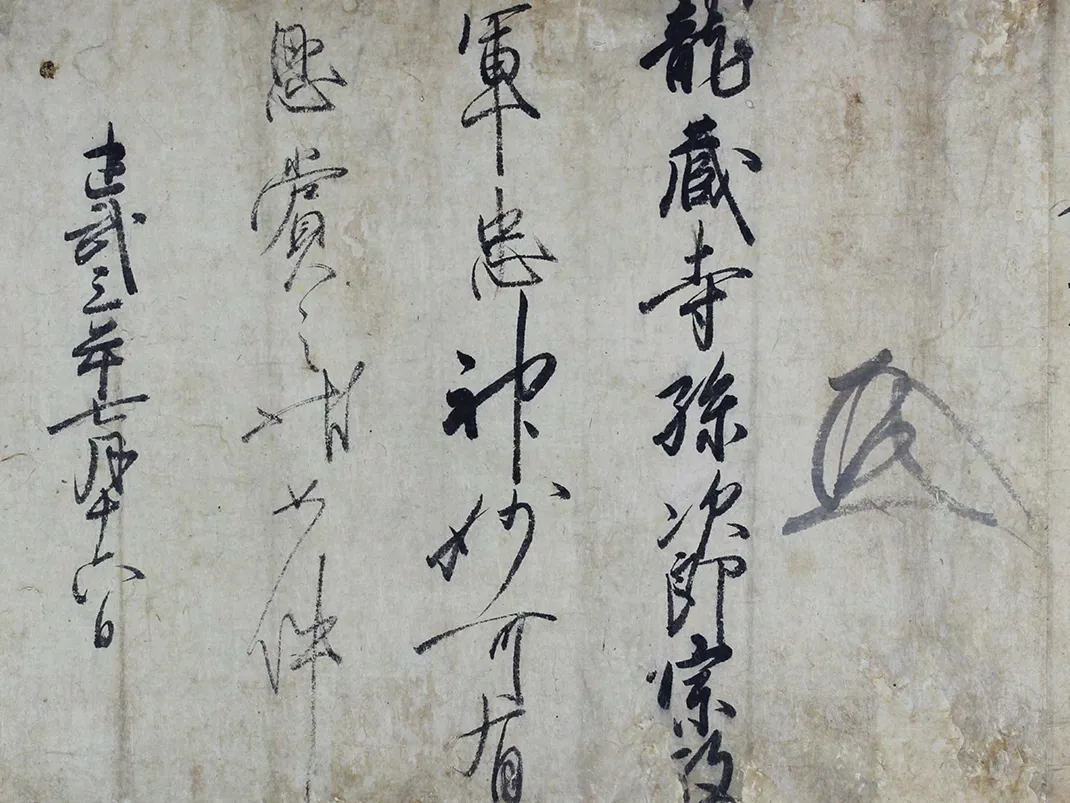 龍蔵寺孫次郎宗政
軍忠神妙可有
恩賞之状如件
建武三年七月十六日